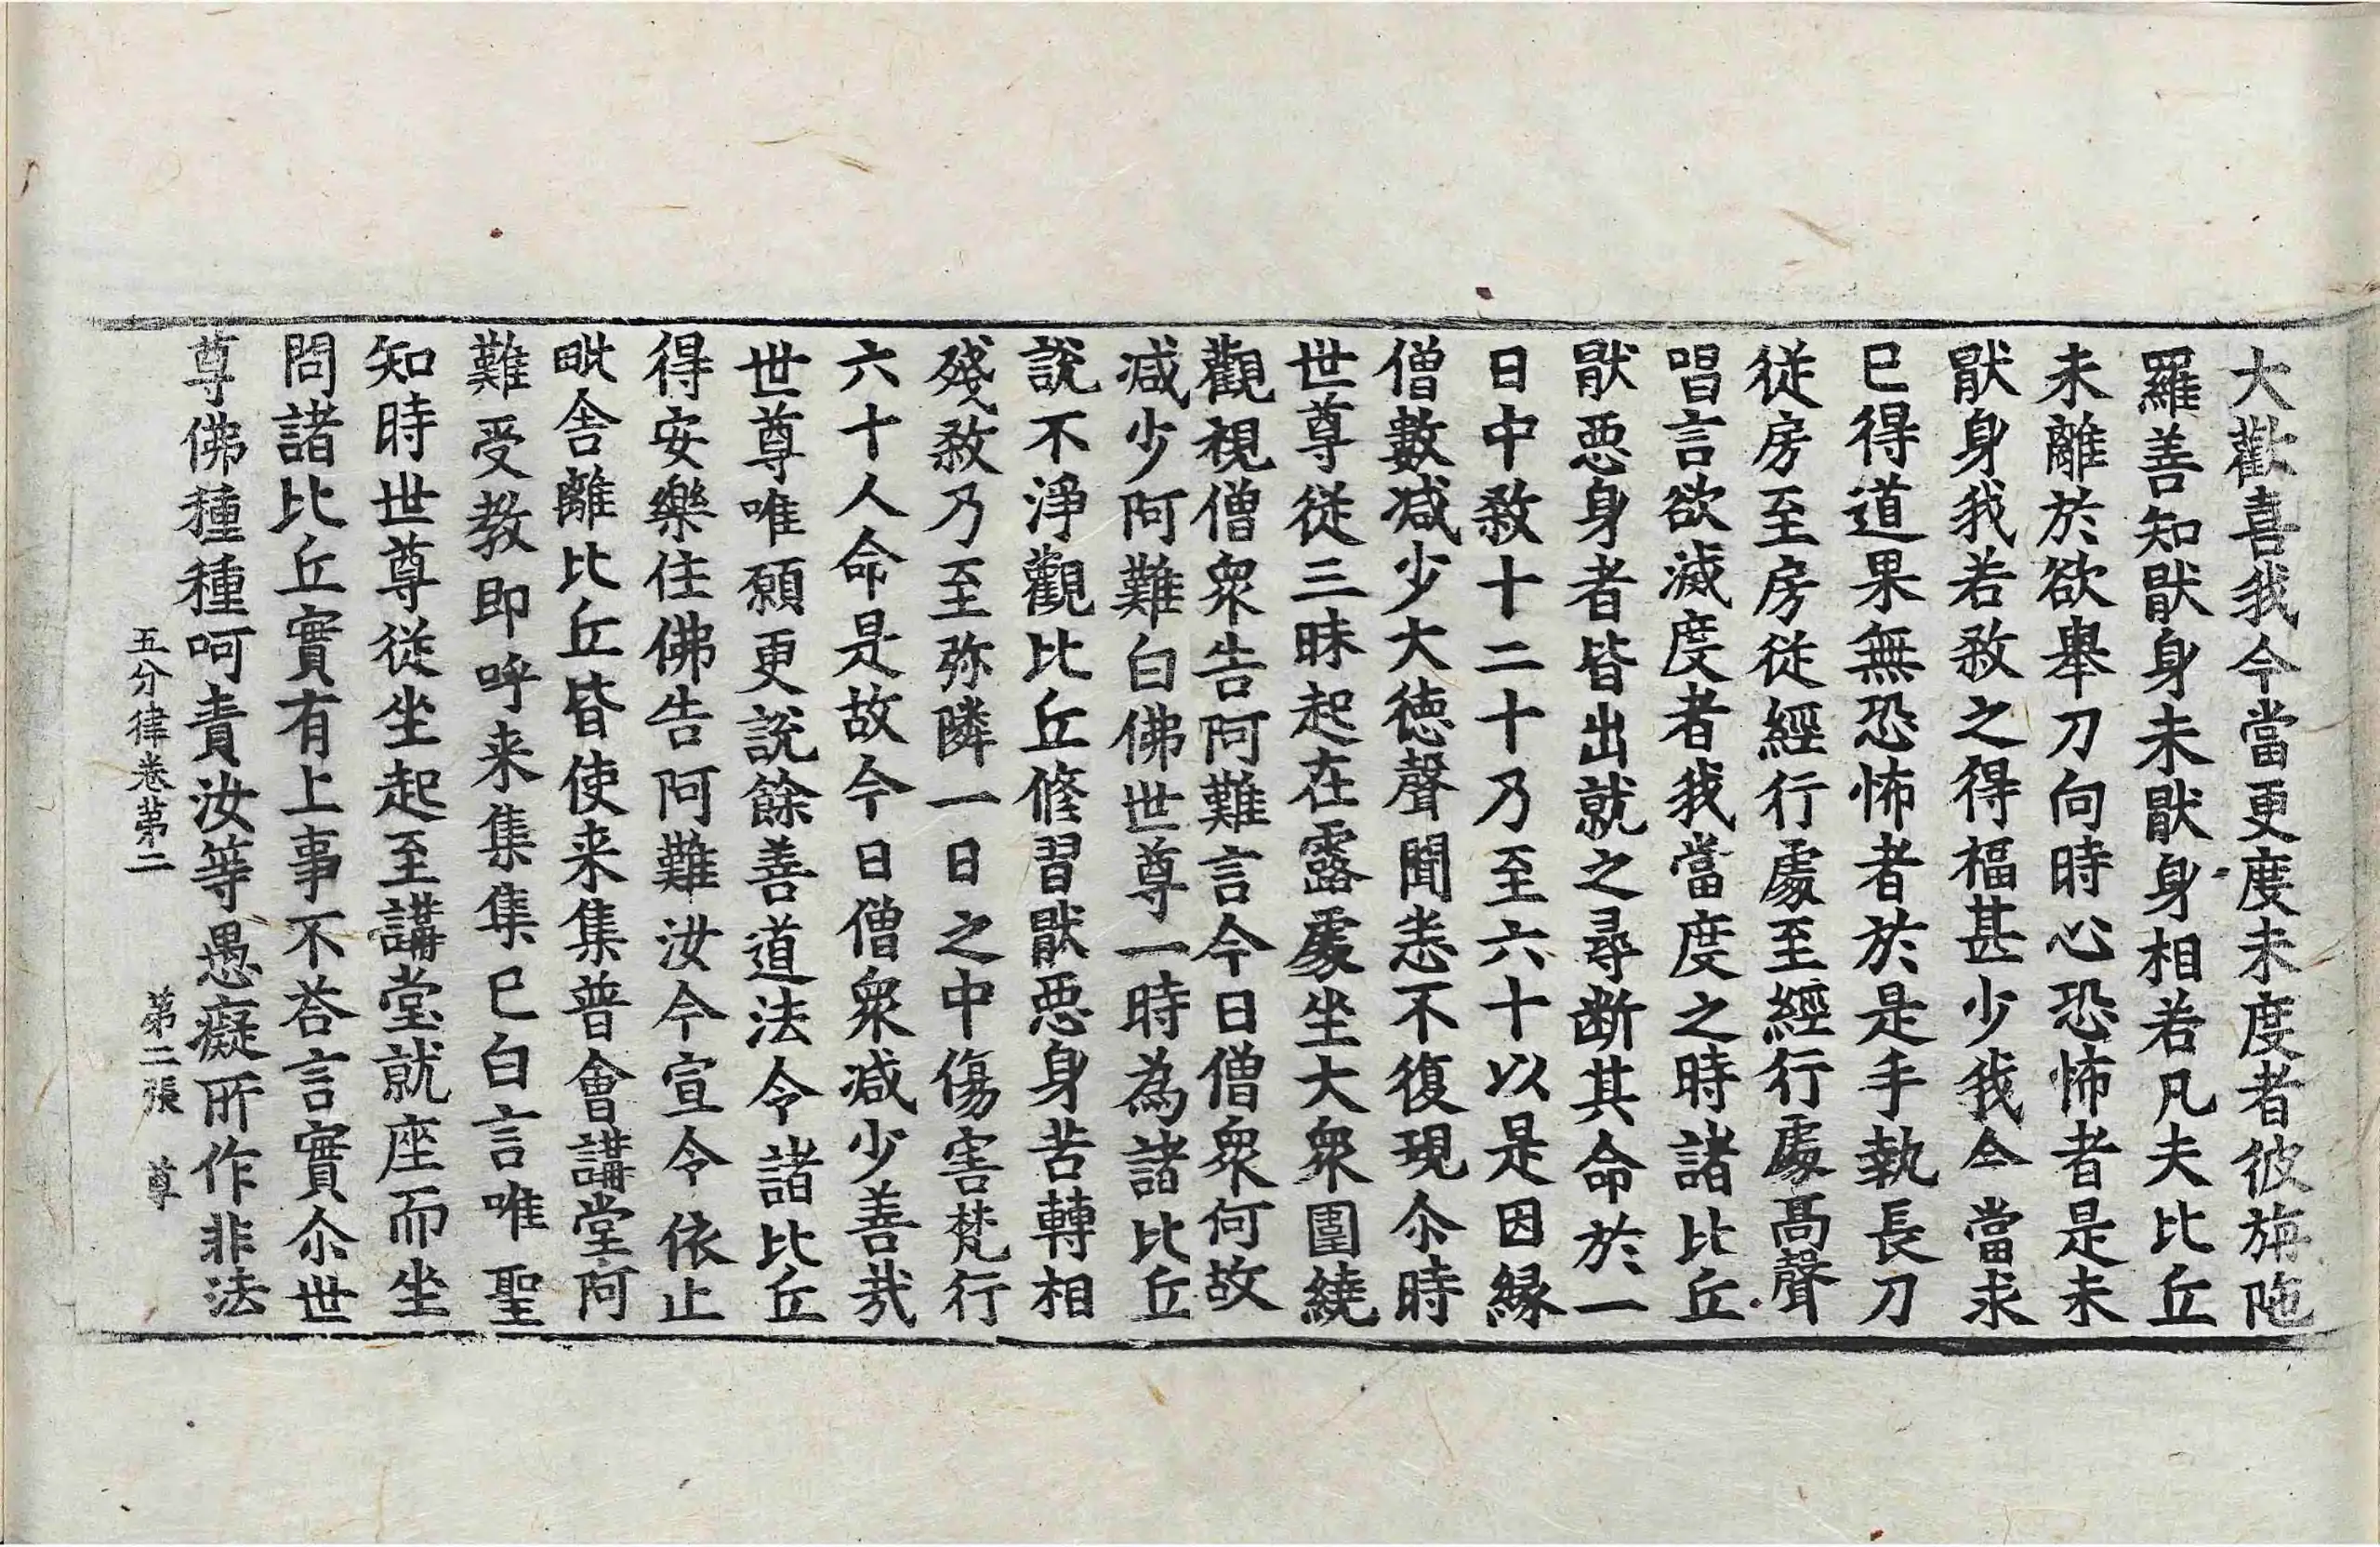 大歡喜我今當更度未度者彼旃陁
羅善知猒身未猒身相若凡夫比丘
未離於欲舉刀向時心恐怖者是未
猒身我若煞之得福甚少我今當求
已得道果無恐怖者於是手執長刀
從房至房從經行處至經行處高聲
唱言欲滅度者我當度之時諸比丘
猒惡身者皆出就之尋断其命於一
日中煞十二十乃至六十以是因緣
僧數减少大德聲聞悉不復現尒時
世尊從三昧起在露處坐大衆圍繞
觀視僧衆告阿難言今日僧衆何故
减少阿難白佛世尊一時為諸比丘
說不淨觀比丘修習猒惡身苦轉相
殘煞乃至弥隣一日之中傷害梵行
六十人命是故今日僧衆减少善哉
世尊唯願更說餘善道法令諸比丘
得安樂住佛告阿難汝今宣令依止
毗舍離比丘皆使来集普會講堂阿
難受教即呼来集集已白言唯聖
知時世尊從坐起至講堂就座而坐
問諸比丘實有上事不荅言實尒世
尊佛種種呵責汝等愚癡所作非法
五分律卷第二 第二張 尊